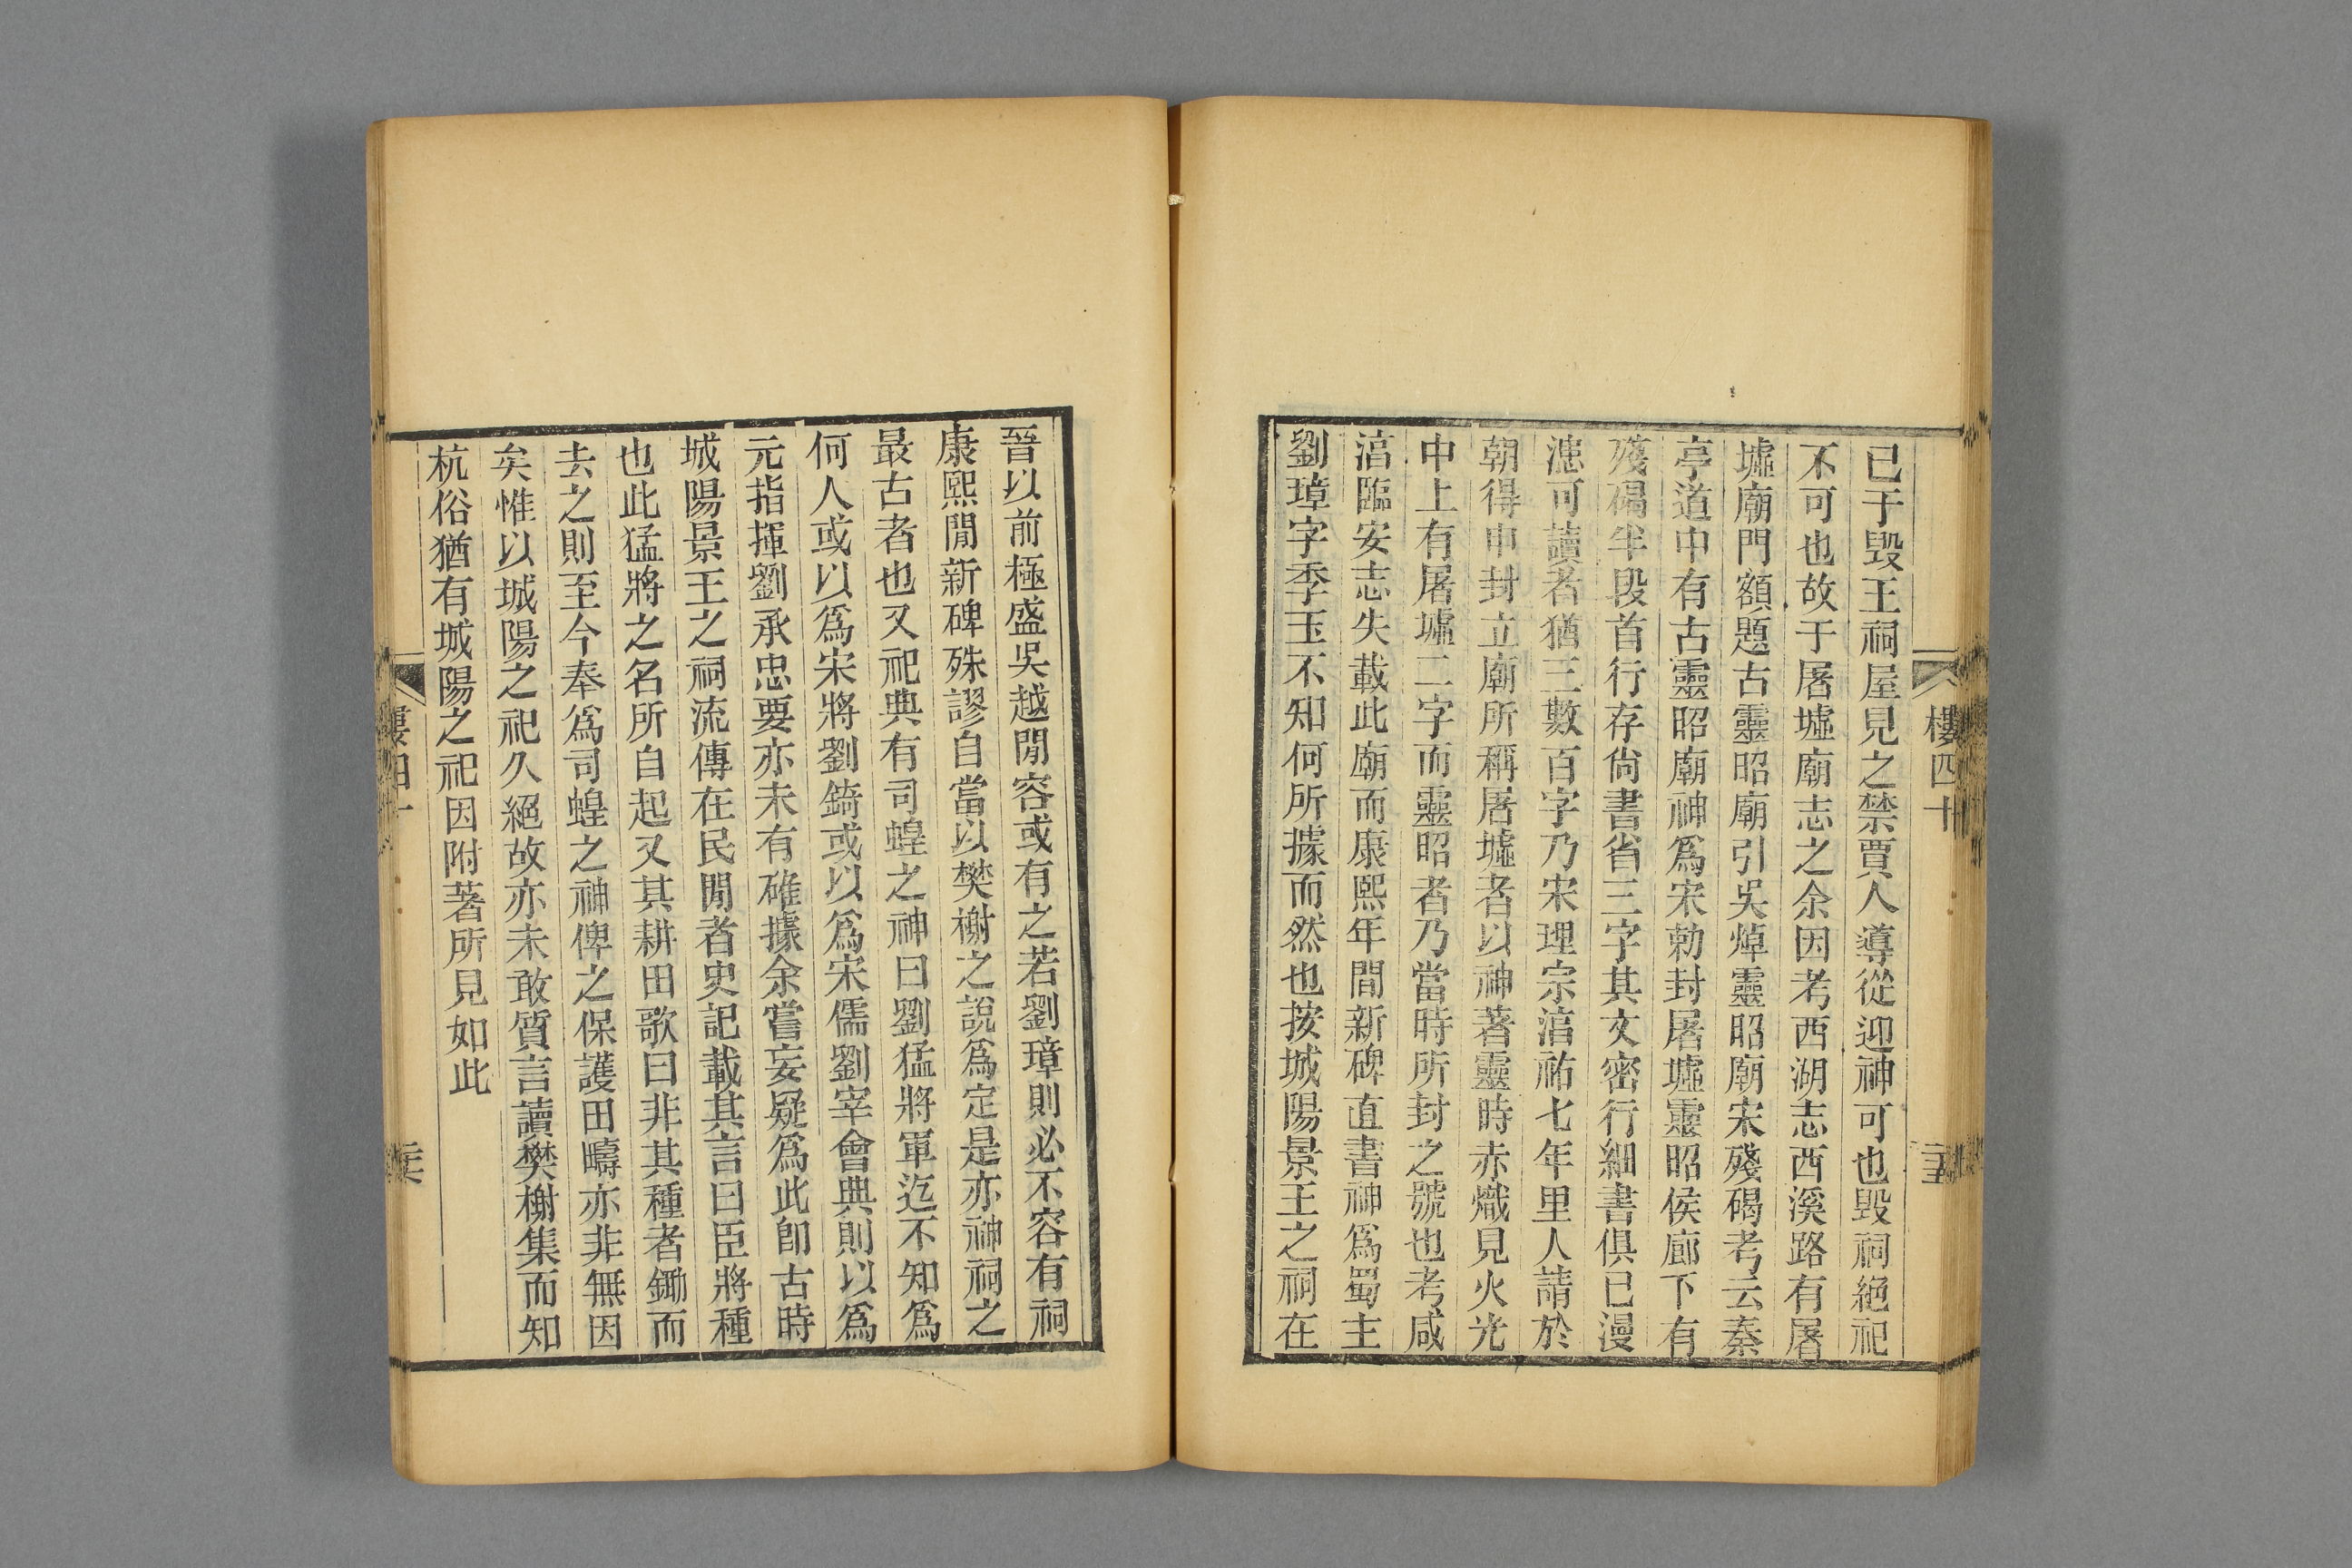 樓四十
二五
已于毀王祠屋見之禁賈人導從迎神可也毀祠絕祀
不可也故于屠墟廟志之余因考西湖志西溪路有屠
墟廟門額題古靈昭廟引吳焯靈昭廟宋殘碣考云秦
亭道中有古靈昭廟神爲宋勅封屠墟靈昭侯廊下有
殘碣半段首行存尙書省三字其文密行細書俱已漫
漶可讀者猶三數百字乃宋理宗湻祐七年里人請於
朝得申封立廟所稱屠墟者以神著靈時赤熾見火光
中上有屠墟二字而靈昭者乃當時所封之號也考咸
湻臨安志失載此廟而康熙年間新碑直書神爲蜀主
劉璋字季玉不知何所據而然也按城陽景王之祠在
晉以前極盛吳越閒容或有之若劉璋則必不容有祠
康熙閒新碑殊謬自當以樊榭之說爲定是亦神祠之
最古者也又祀典有司蝗之神曰劉猛將軍迄不知爲
何人或以爲宋將劉錡或以爲宋儒劉宰會典則以爲
元指揮劉承忠要亦未有確據余嘗妄疑爲此卽古時
城陽景王之祠流傳在民閒者史記載其言曰臣將種
也此猛將之名所自起又其耕田歌曰非其種者鋤而
去之則至今奉爲司蝗之神俾之保護田疇亦非無因
矣惟以城陽之祀久絕故亦未敢質言讀樊榭集而知
杭俗猶有城陽之祀因附著所見如此
樓四十